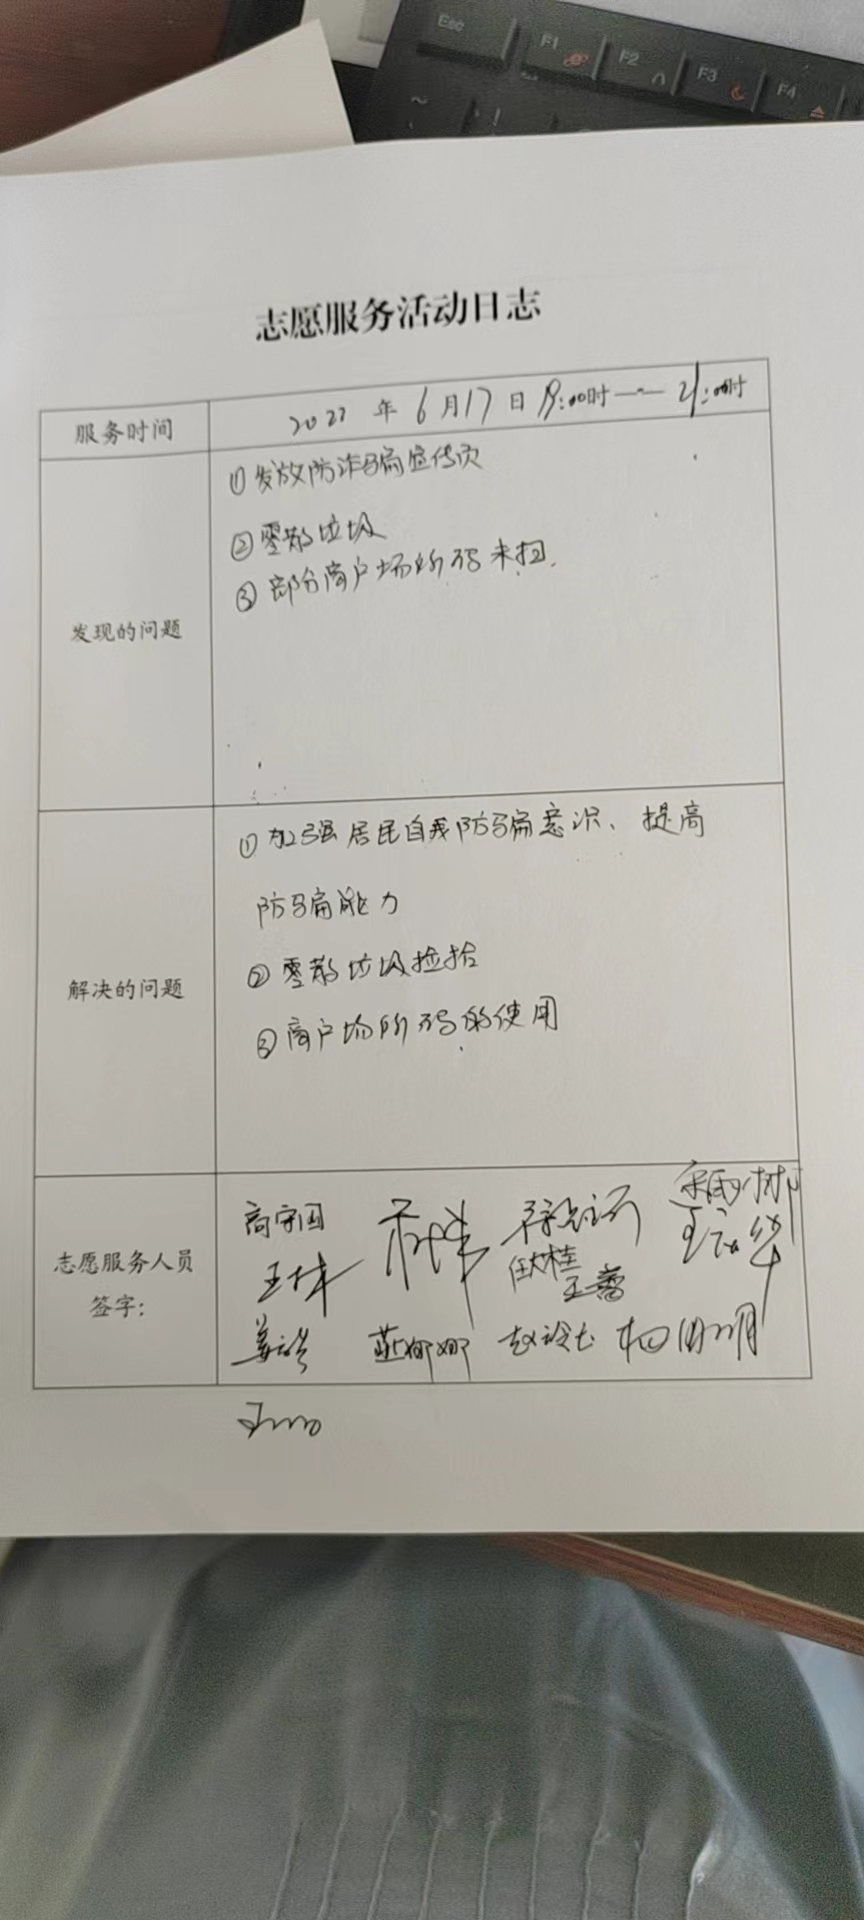 Esc
F1
F2
F3
F4
~
!
志愿服务活动日志
服务时间
2022 年 6月17日 19:00时——21:00时
发现的问题
①发放防诈骗宣传页
②零散垃圾
③部分商户场所码未扫.
解决的问题
①加强居民自我防骗意识、提高
防骗能力
②零散垃圾捡拾
③商户场所码的使用
志愿服务人员
签字:
高守国
王林
任大桂
王蕾